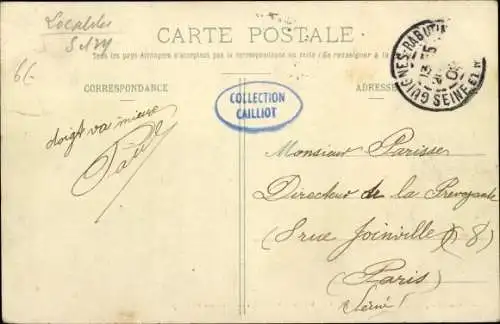 Localites
S.&M
6f-
CARTE POSTALE
Tous les pays étrangers n'acceptent pas la correspondance au recto (Se renseigner à la
CORRESPONDANCE
ADRESSE
COLLECTION
CAILLIOT
GUIGNES-RABUTIN
SEINE ET M
doigt va mieux
Paul
Monsieur Parisser
Directeur de la Prévoyante
(8 rue Joinville
(Paris)